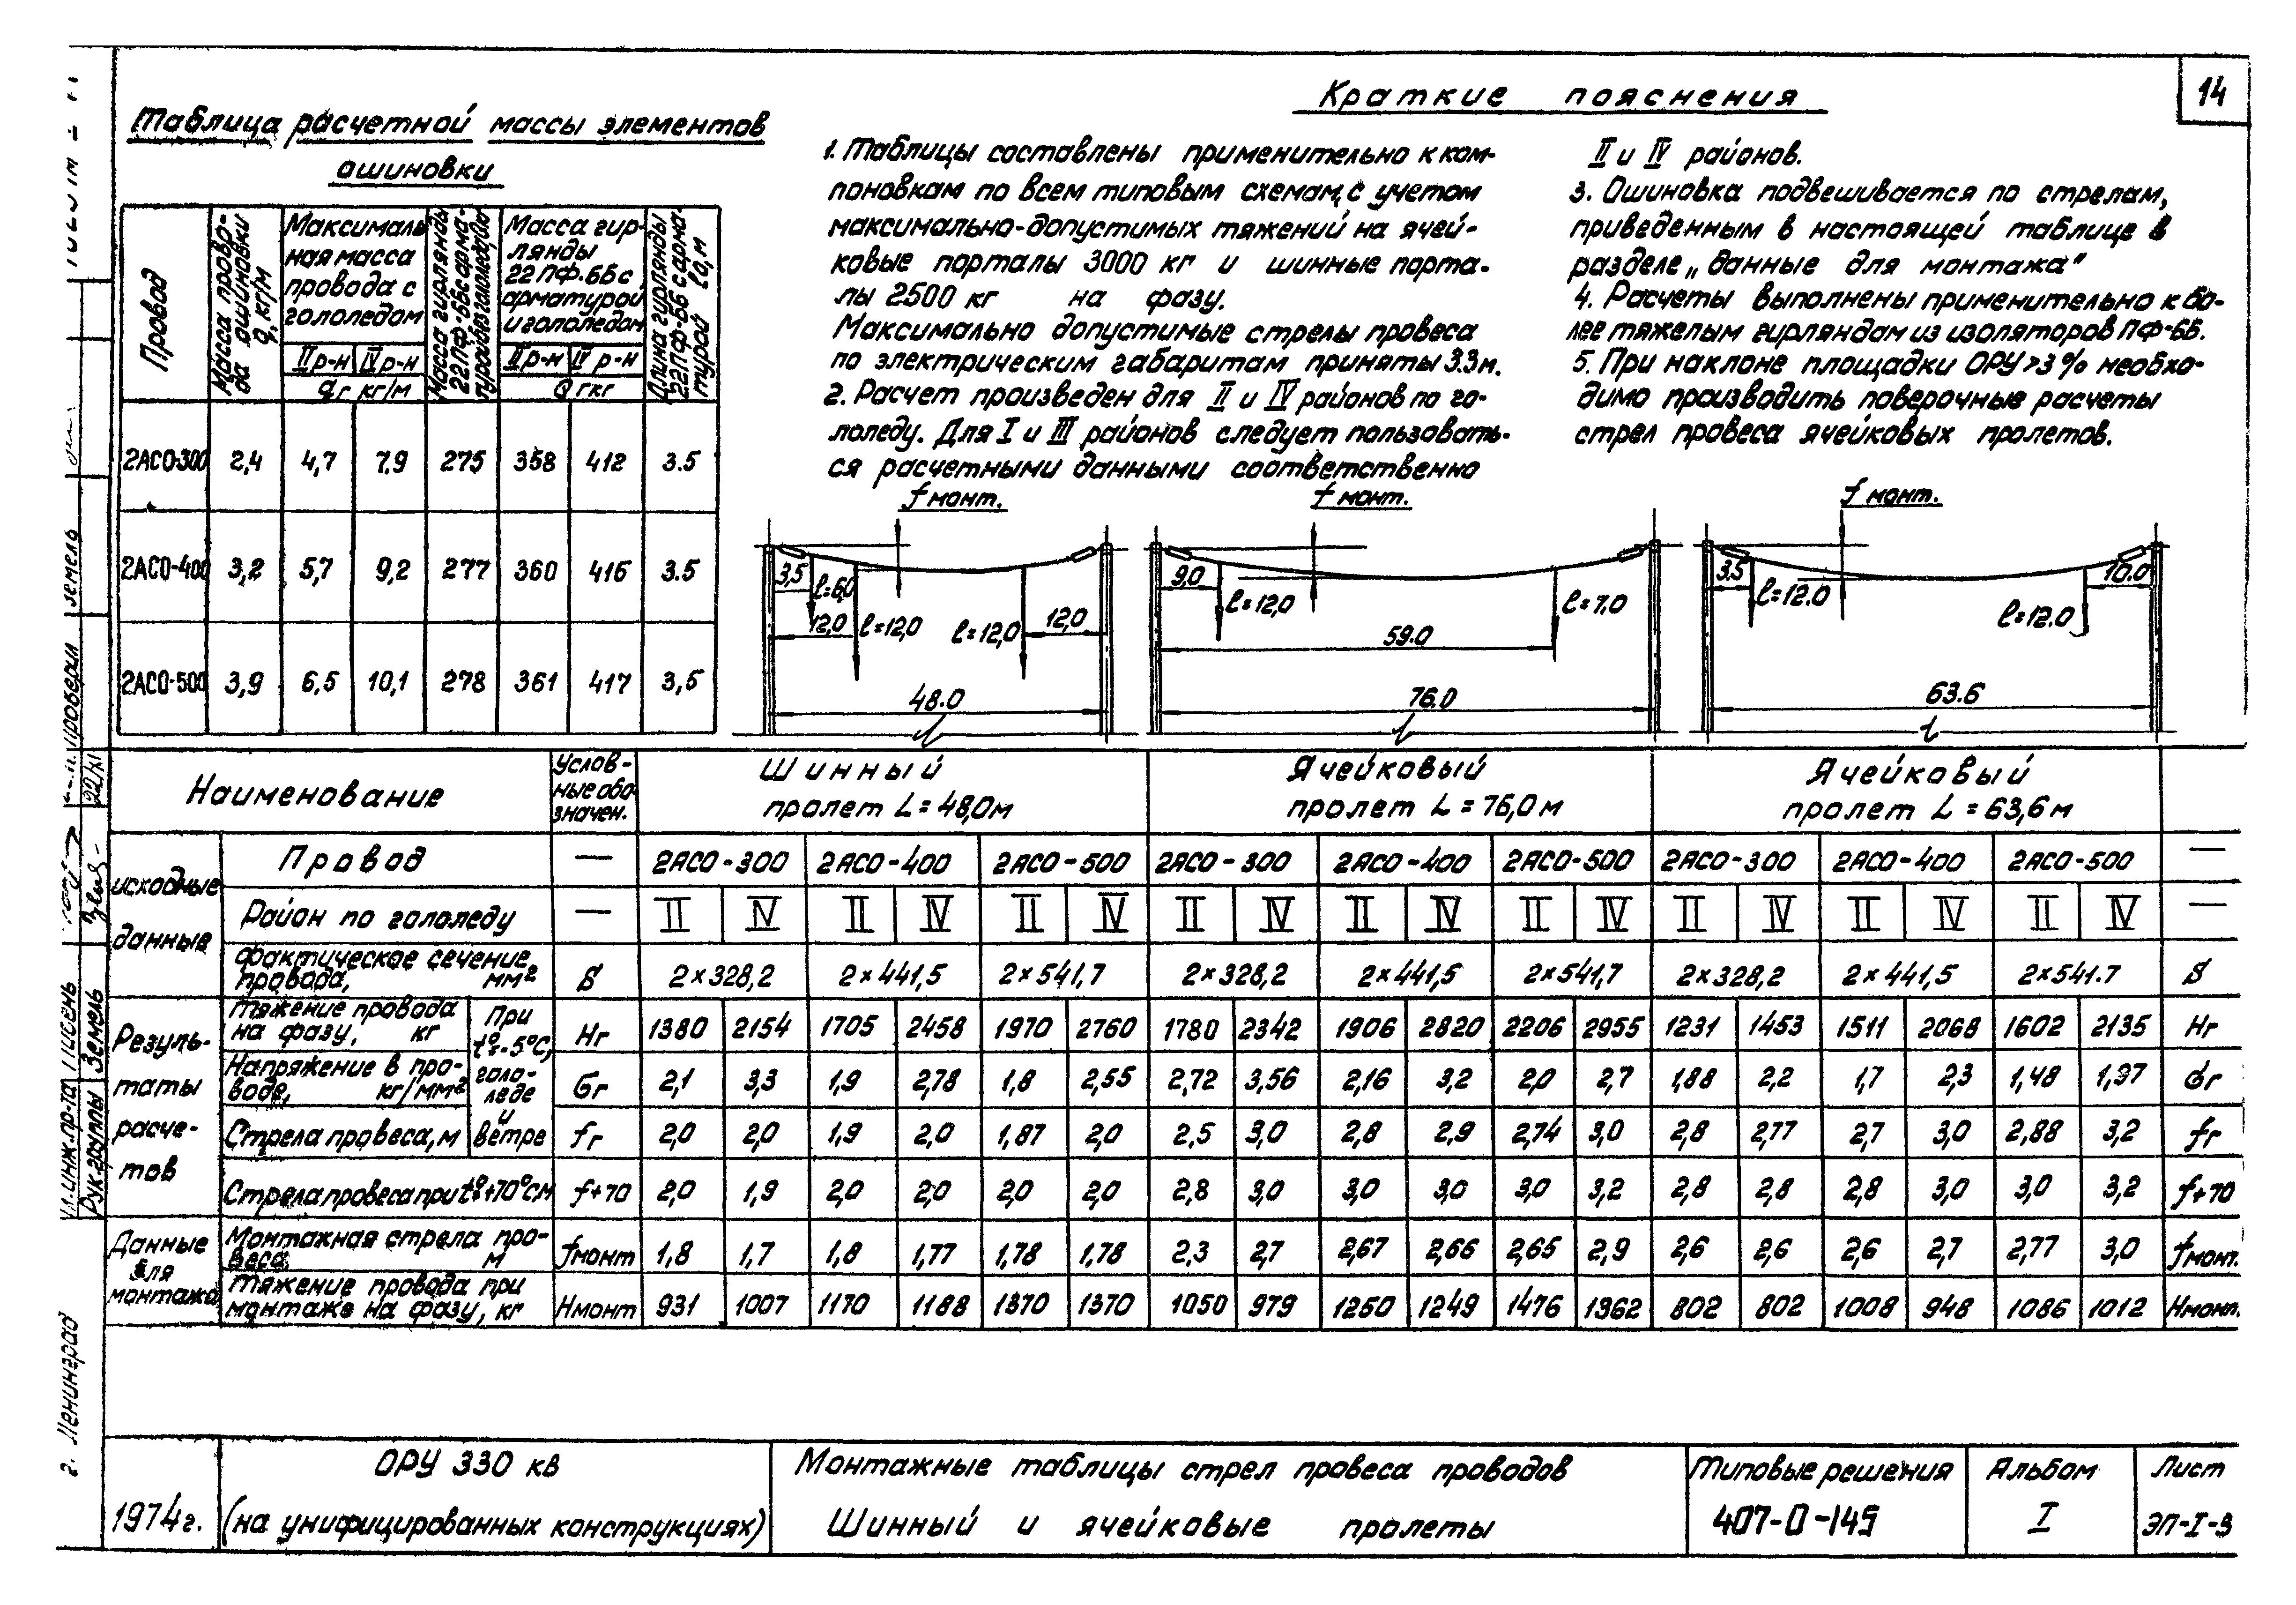 14
Таблица расчетной массы элементов
ошиновки
Провод
Масса прово-
да ошиновки
q, кг/м
Максималь
ная масса
провода с
гололедом
II р-н IV р-н
qг кг/м
Масса гирлянды
22ПФ-6Б с арма-
турой без гололеда
Масса гир-
лянды
22 ПФ-6Б с
арматурой
и гололедом
II р-н IV р-н
Qг кг
Длина гирлянды
22ПФ-6Б с арма-
турой lо, м
2АСО-300 2,4 4,7 7.9 275 358 412 3.5
2АСО-400 3,2 5,7 9,2 277 360 416 3.5
2АСО-500 3,9 6,5 10,1 278 361 417 3,5
Краткие пояснения
1. Таблицы составлены применительно к ком-
поновкам по всем типовым схемам, с учетом
максимально-допустимых тяжений на ячей-
ковые порталы 3000 кг и шинные порта-
лы 2500 кг на фазу.
Максимально допустимые стрелы провеса
по электрическим габаритам приняты 3.3м.
2. Расчет произведен для II и IV районов по го-
лоледу. Для I и III районов следует пользовать-
ся расчетными данными соответственно
II и IV районов.
3. Ошиновка подвешивается по стрелам,
приведенным в настоящей таблице в
разделе „данные для монтажа"
4. Расчеты выполнены применительно к бо-
лее тяжелым гирляндам из изоляторов ПФ-6Б.
5. При наклоне площадки ОРУ >3% необхо-
димо производить поверочные расчеты
стрел провеса ячейковых пролетов.
f монт.
3,5
l=6,0
12,0 l=12,0 l=12,0 12,0
48.0
f монт.
9,0
l=12,0 l=7.0
59.0
76.0
f монт.
3.5 10.0
l=12.0 l=12.0
63.6
Наименование
Услов-
ные обо-
значен.
Шинный
пролет L=48,0м
Ячейковый
пролет L=76,0м
Ячейковый
пролет L=63,6м
исходные
данные
Провод — 2АСО-300 2АСО-400 2АСО-500 2АСО-300 2АСО-400 2АСО-500 2АСО-300 2АСО-400 2АСО-500 —
Район по гололеду — II IV II IV II IV II IV II IV II IV II IV II IV II IV —
Фактическое сечение
провода, мм² S 2×328,2 2×441,5 2×541,7 2×328,2 2×441,5 2×541,7 2×328,2 2×441,5 2×541.7 S
Резуль-
таты
расче-
тов
При
t°=-5°С,
голо-
леде
и
ветре
Тяжение провода
на фазу, кг Hг 1380 2154 1705 2458 1970 2760 1780 2342 1906 2820 2206 2955 1231 1453 1511 2068 1602 2135 Hг
Напряжение в про-
воде, кг/мм² σг 2,1 3,3 1,9 2,78 1,8 2,55 2,72 3,56 2,16 3,2 2,0 2,7 1,88 2,2 1,7 2,3 1,48 1,97 σг
Стрела провеса, м fг 2,0 2,0 1,9 2,0 1,87 2,0 2,5 3,0 2,8 2,9 2,74 3,0 2,8 2,77 2,7 3,0 2,88 3,2 fг
Стрела провеса при t°+70°С,м f+70 2,0 1,9 2,0 2,0 2,0 2,0 2,8 3,0 3,0 3,0 3,0 3,2 2,8 2,8 2,8 3,0 3,0 3,2 f+70
Данные
для
монтажа
Монтажная стрела про-
веса м fмонт 1,8 1,7 1,8 1,77 1,78 1,78 2,3 2,7 2,67 2,66 2,65 2,9 2,6 2,6 2,6 2,7 2,77 3,0 fмонт.
Тяжение провода при
монтаже на фазу, кг Hмонт 931 1007 1170 1188 1370 1370 1050 979 1250 1249 1476 1362 802 802 1008 948 1086 1012 Hмонт.
1974г.
ОРУ 330 кв
(на унифицированных конструкциях)
Монтажные таблицы стрел провеса проводов
Шинный и ячейковые пролеты
Типовые решения
407-0-145
Альбом
I
Лист
ЭП-I-3
Рук. группы Земель
г. Ленинград